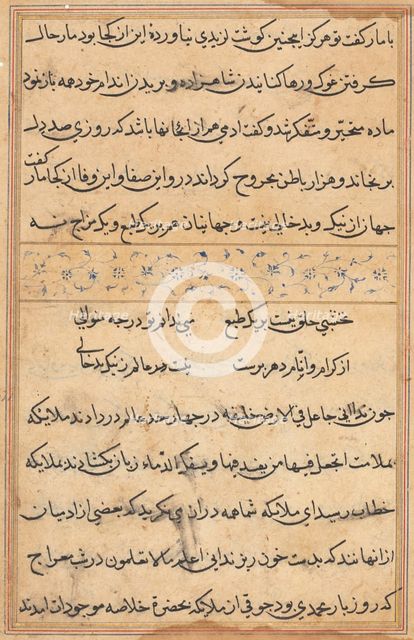 با مار گفت تو هرگز اینچنین گوشت لذیذی نیاوردهٔ این از کجا بود مار حال
گرفتن غوک و رها کنانیدن شاهزاده و بریدن از اندام خود همه باز نمود
ماده متحیر و متفکر شد و گفت ادمی هم از انها باشد که روزی صد دل
برنجاند و هزار باطن مجروح گرداند درو این صفا و این وفا از کجا مار گفت
جهان از نیک و بد خالی نیست و جهانیان همه بر یک طبع و یک مزاج نه
نخشبی خلق نیست بر یک طبع می ندانم تو در چه سوالی
از کرام و لئام دهر پرست نیست عالم ز نیک و بد خالی
چون ندا انی جاعل فی الارض خلیفه در جهان عالم در دادند ملایکه
بملامت اتجعل فیها من یفسد فیها و یسفک الدماء زبان بگشادند بملایکه
خطاب رسید ای ملایکه شما همه دران می نگرید که بعضی از ادمیان
از انها نند که بدست خون ریزند انی اعلم ما لا تعلمون در شب معراج
که روز بار محمدی بود جوقی از ملایکه بحضرة خلاصه موجودات امدند
Heritage